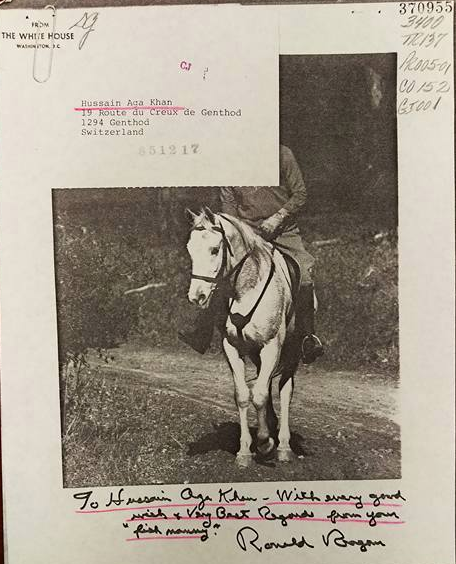 370955
FROM
THE WHITE HOUSE
WASHINGTON, D.C.
3400
TR137
PR005-01
CO 152
GI001
Hussain Aga Khan
19 Route du Creux de Genthod
1294 Genthod
Switzerland
851217
To Hussain Aga Khan - With every good
wish & Very Best Regards from your
"fish nanny."
Ronald Reagan